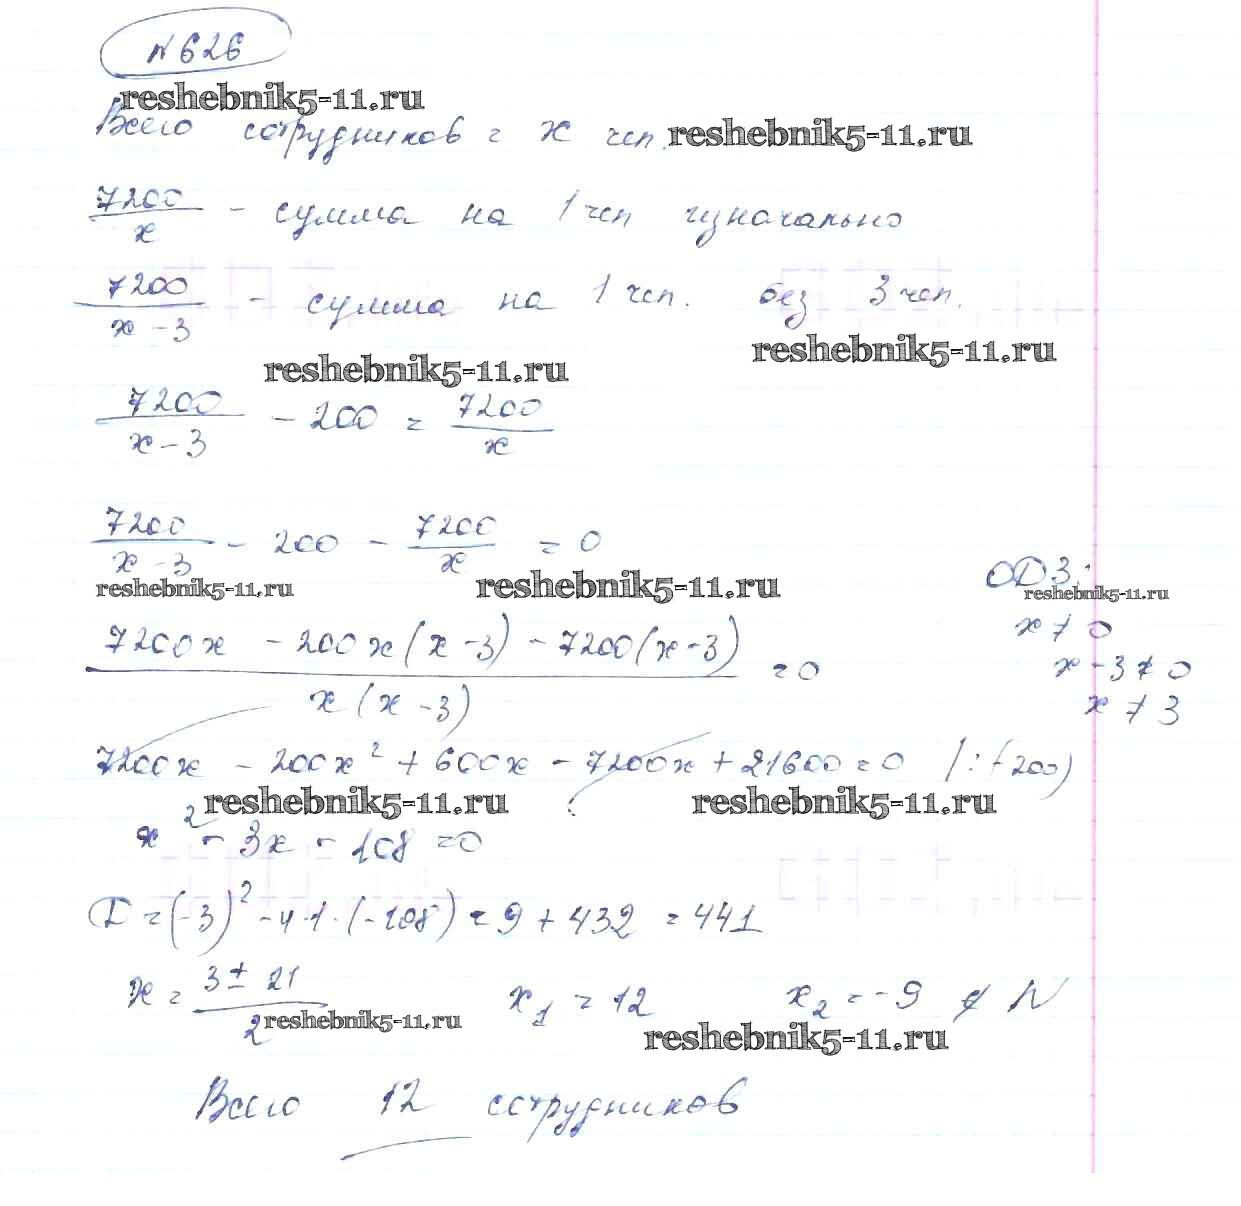 № 626
reshebnik5-11.ru
Всего сотрудников = x чел. reshebnik5-11.ru
7200/x - сумма на 1 чел изначально
7200/(x - 3) - сумма на 1 чел. без 3 чел.
reshebnik5-11.ru reshebnik5-11.ru
7200/(x - 3) - 200 = 7200/x
7200/(x - 3) - 200 - 7200/x = 0
ОДЗ:
reshebnik5-11.ru reshebnik5-11.ru reshebnik5-11.ru
x ≠ 0
(7200x - 200x(x - 3) - 7200(x - 3))/(x(x - 3)) = 0
x - 3 ≠ 0
x ≠ 3
7200x - 200x² + 600x - 7200x + 21600 = 0 /:(-200)
reshebnik5-11.ru reshebnik5-11.ru
x² - 3x - 108 = 0
D = (-3)² - 4·1·(-108) = 9 + 432 = 441
x = (3 ± 21)/2 x₁ = 12 x₂ = -9 ∉ N
reshebnik5-11.ru reshebnik5-11.ru
Всего 12 сотрудников